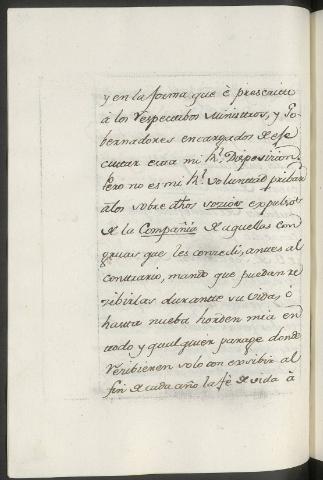 y en la forma que è prescrito
à los respectibos Ministros, y Go-
bernadores encargados de efe
cutar esta mi Rl. Disposicion,
Pero no es mi Rl. voluntad pribar
à los sobre dhos. sozios expulsos
de la Compañia de aquellas con
gruas que les concedi, antes al
contrario, mando que puedan re
zibirlas durante su vida, ó
hasta nueba horden mia en
todo y qualquier parage donde
resibieren solo con exsibir al
fin de cada año la fè de vida à